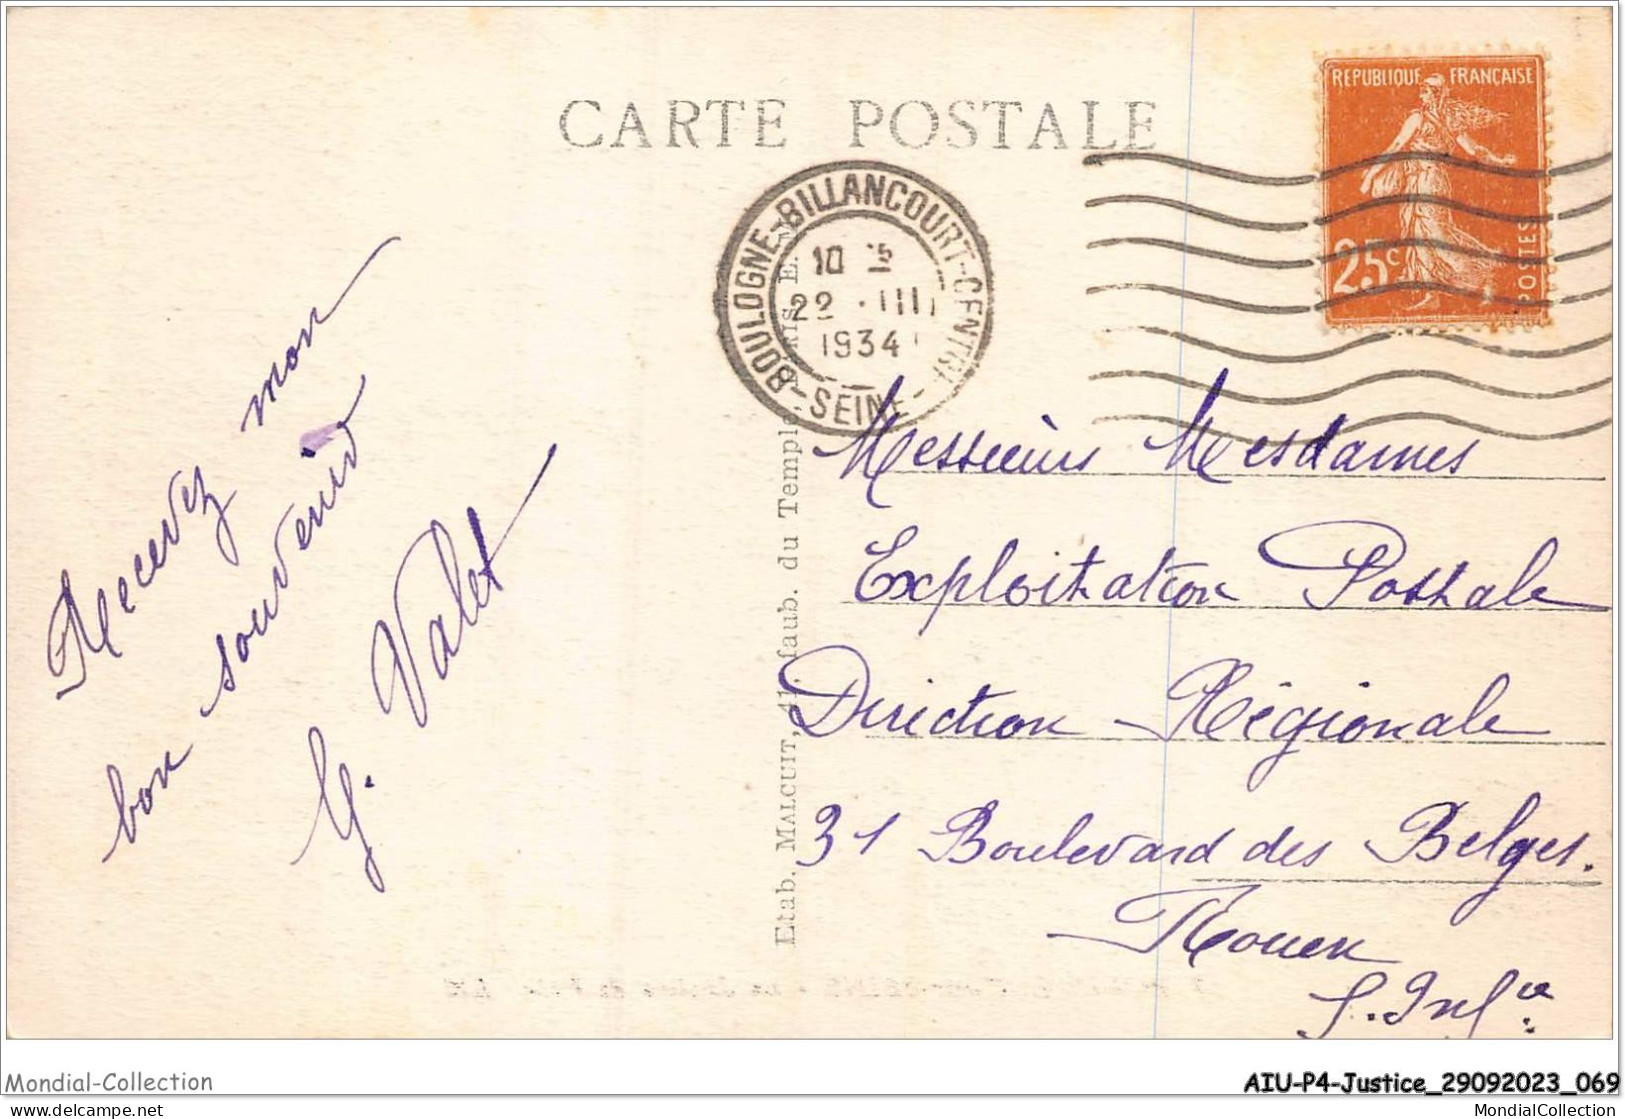 CARTE POSTALE
REPUBLIQUE FRANÇAISE
25c
POSTES
BOULOGNE-BILLANCOURT-CENTRAL
10
22 · III
1934
-SEINE-
Recevez mon
bon souvenir
G. Valet
Messieurs Mesdames
Exploitation Postale
Direction Régionale
31 Boulevard des Belges.
Rouen
S. Infre
Etab. MALCUIT, 41, faub. du Temple, PARIS
Mondial-Collection
AIU-P4-Justice_29092023_069
delcampe.net
MondialCollection